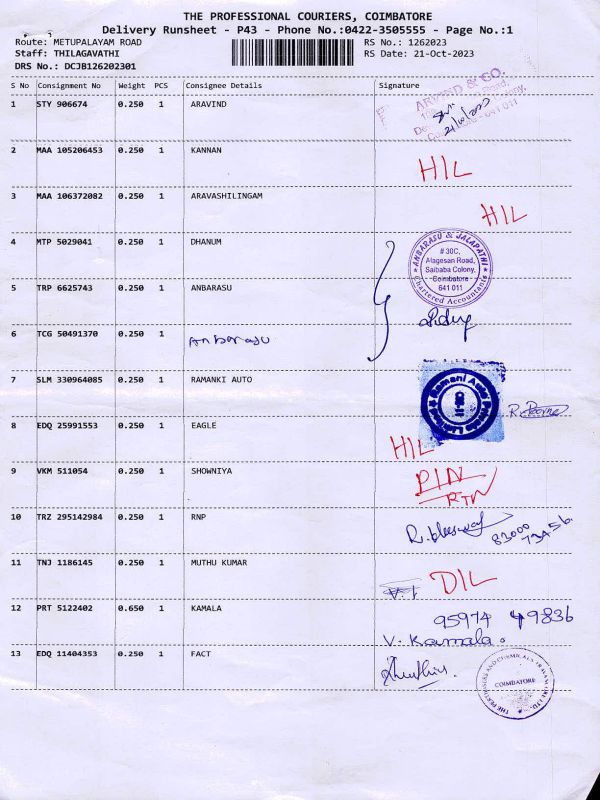 THE PROFESSIONAL COURIERS, COIMBATORE
Delivery Runsheet - P43 - Phone No.:0422-3505555 - Page No.:1
Route: METUPALAYAM ROAD RS No.: 1262023
Staff: THILAGAVATHI RS Date: 21-Oct-2023
DRS No.: DCJB126202301
S No Consignment No Weight PCS Consignee Details Signature
1 STY 906674 0.250 1 ARAVIND
ARVIND & CO.
21/10/2023
641 011
2 MAA 105206453 0.250 1 KANNAN HIL
3 MAA 106372082 0.250 1 ARAVASHILINGAM HIL
4 MTP 5029041 0.250 1 DHANUM
ANBARASU & JALAPATHI
# 30C,
Alagesan Road,
Saibaba Colony,
Coimbatore
641 011
Chartered Accountants
5 TRP 6625743 0.250 1 ANBARASU
6 TCG 50491370 0.250 1 Anbarasu
7 SLM 330964085 0.250 1 RAMANKI AUTO
Ramani Auto Private Limited
8 EDQ 25991553 0.250 1 EAGLE HIL
9 VKM 511054 0.250 1 SHOWNIYA PIN
RTN
10 TRZ 295142984 0.250 1 RNP
83000
73456
11 TNJ 1186145 0.250 1 MUTHU KUMAR DIL
12 PRT 5122402 0.650 1 KAMALA 95974 49836
V. Kamala
13 EDQ 11404353 0.250 1 FACT
THE FERTILISERS AND CHEMICALS TRAVANCORE LTD.
COIMBATORE